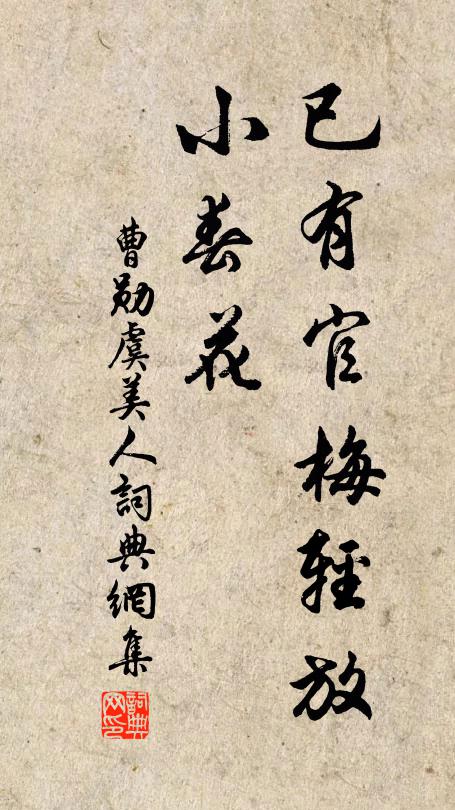 已有官梅輕放
小春花
曹勛虞美人詞典網集
詞典网印